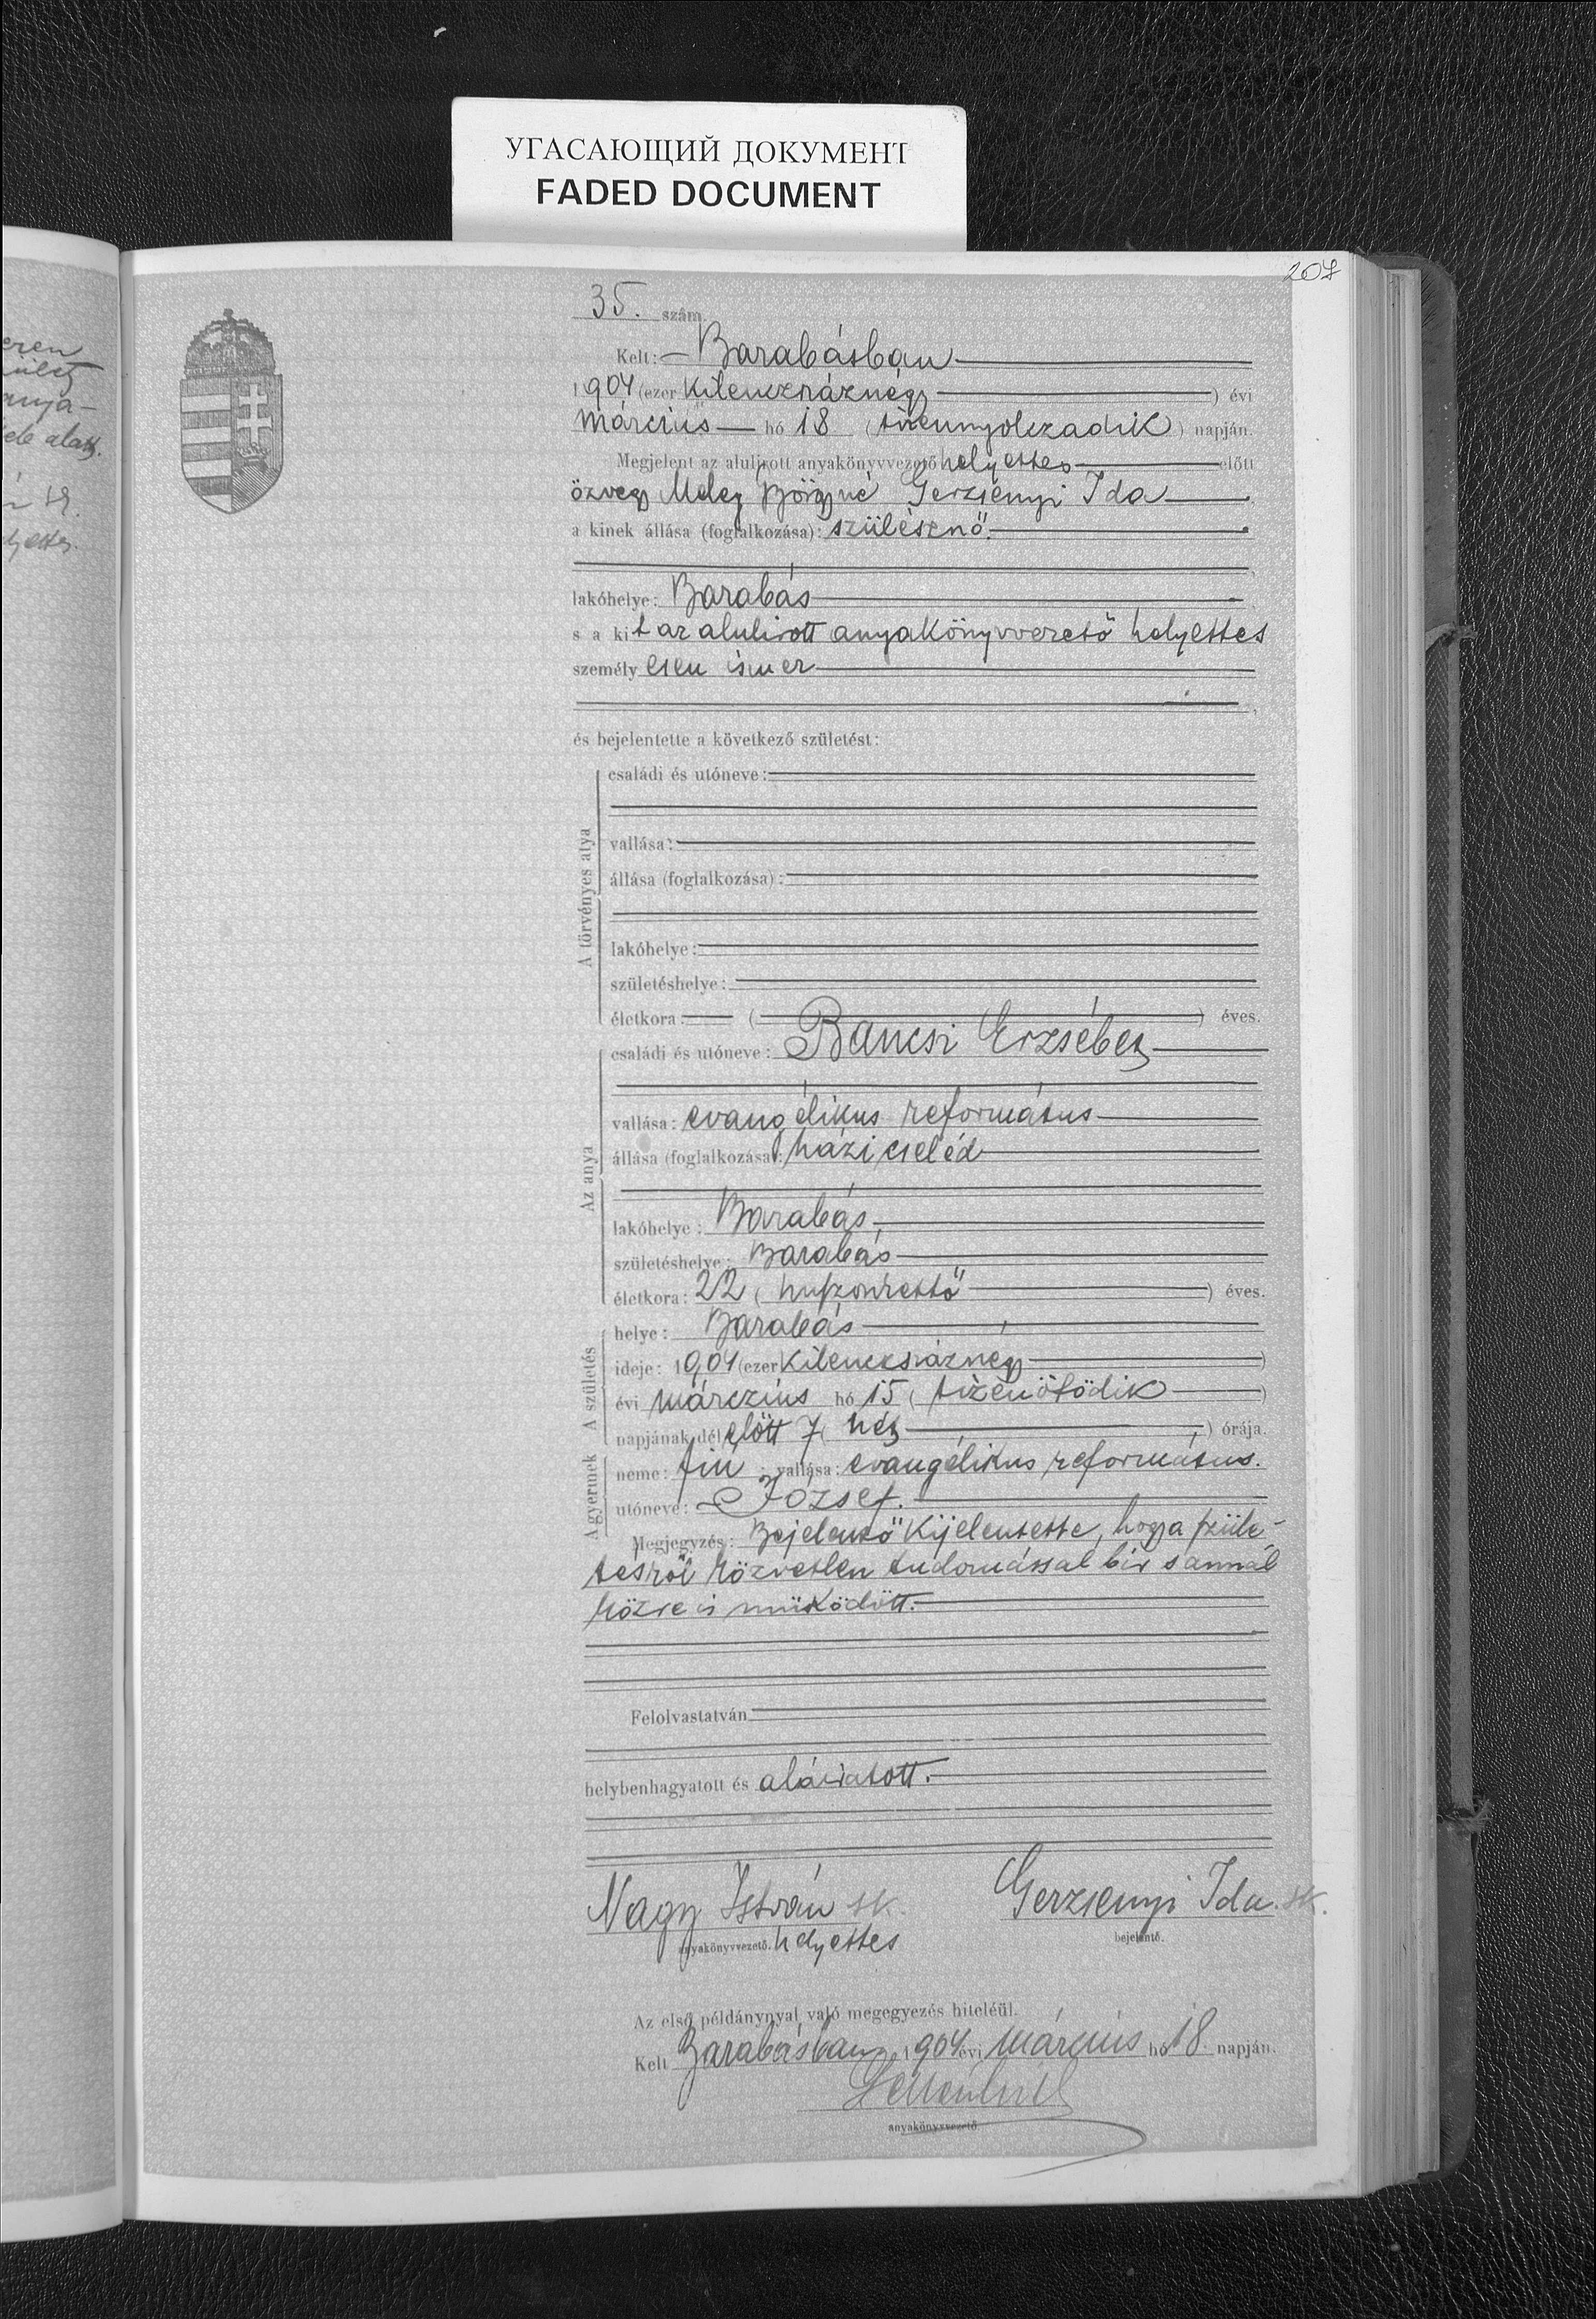 УГАСАЮЩИЙ ДОКУМЕНТ
FADED DOCUMENT
207
35. szám.
Kelt: Barabásban
1904 (ezer kilenczszáznégy) évi
márczius hó 18 (tizennyolczadik) napján.
Megjelent az alulirott anyakönyvvezető helyettes előtt
özvegy Meleg Györgyné Gerzsenyi Ida
a kinek állása (foglalkozása): szülésznő.
lakóhelye: Barabás
s a kit az alulirott anyakönyvvezető helyettes
személyesen ismer
és bejelentette a következő születést:
A törvényes atya
családi és utóneve:
vallása:
állása (foglalkozása):
lakóhelye:
születéshelye:
életkora: ( ) éves.
Az anya
családi és utóneve: Bancsi Erzsébet
vallása: evangélikus református
állása (foglalkozása): házi cseléd
lakóhelye: Barabás,
születéshelye: Barabás
életkora: 22 (huszonkettő) éves.
A születés
helye: Barabás
ideje: 1904 (ezer kilenczszáznégy)
évi márczius hó 15 (tizenötödik)
napjának dél előtt 7 (hét) órája.
A gyermek
neme: fiú; vallása: evangélikus református.
utóneve: József.
Megjegyzés: Bejelentő kijelentette, hogy a szüle-
tésről közvetlen tudomással bir s annál
közre is müködött.
Felolvastatván
helybenhagyatott és aláiratott.
Nagy István sk. Gerzsenyi Ida sk.
anyakönyvvezető. helyettes bejelentő.
Az első példánynyal való megegyezés hiteléül.
Kelt Barabásban 1904 évi márczius hó 18 napján.
anyakönyvvezető.